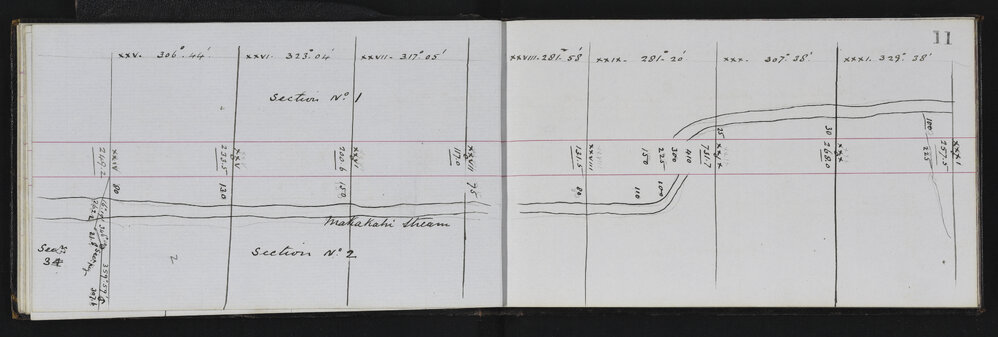 11
xxv. 306°.44'
xxvi. 323°.04'
xxvii- 317°.05'
xxviii- 281°.58'
xxix- 281°-20'
xxx. 307°.38'
xxxi. 329°.38'
Section No. 1
xxiv
249.2
80
xxv
223.5
130
xxvi
200.6
150
xxvii
117.0
75
xxviii
131.5
80
xxix
751.7
25
410
300
225
150
100
110
xxx
268.0
30
xxxi
257.5
225
100
Makakahi Stream
Section No. 2
Sec.
34
2
359°.59'
307.6